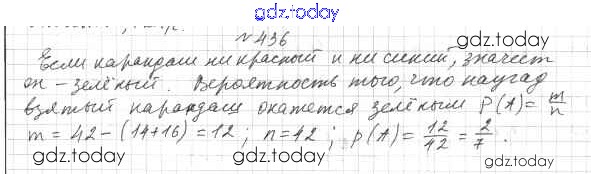 gdz.today
№436
Если карандаш ни красный и ни синий, значит
он – зелёный. Вероятность того, что наугад
взятый карандаш окажется зелёным P(A) = m/n
m = 42 – (14+16) = 12; n=42; p(A) = 12/42 = 2/7.
gdz.today
gdz.today
gdz.today
gdz.today
gdz.today